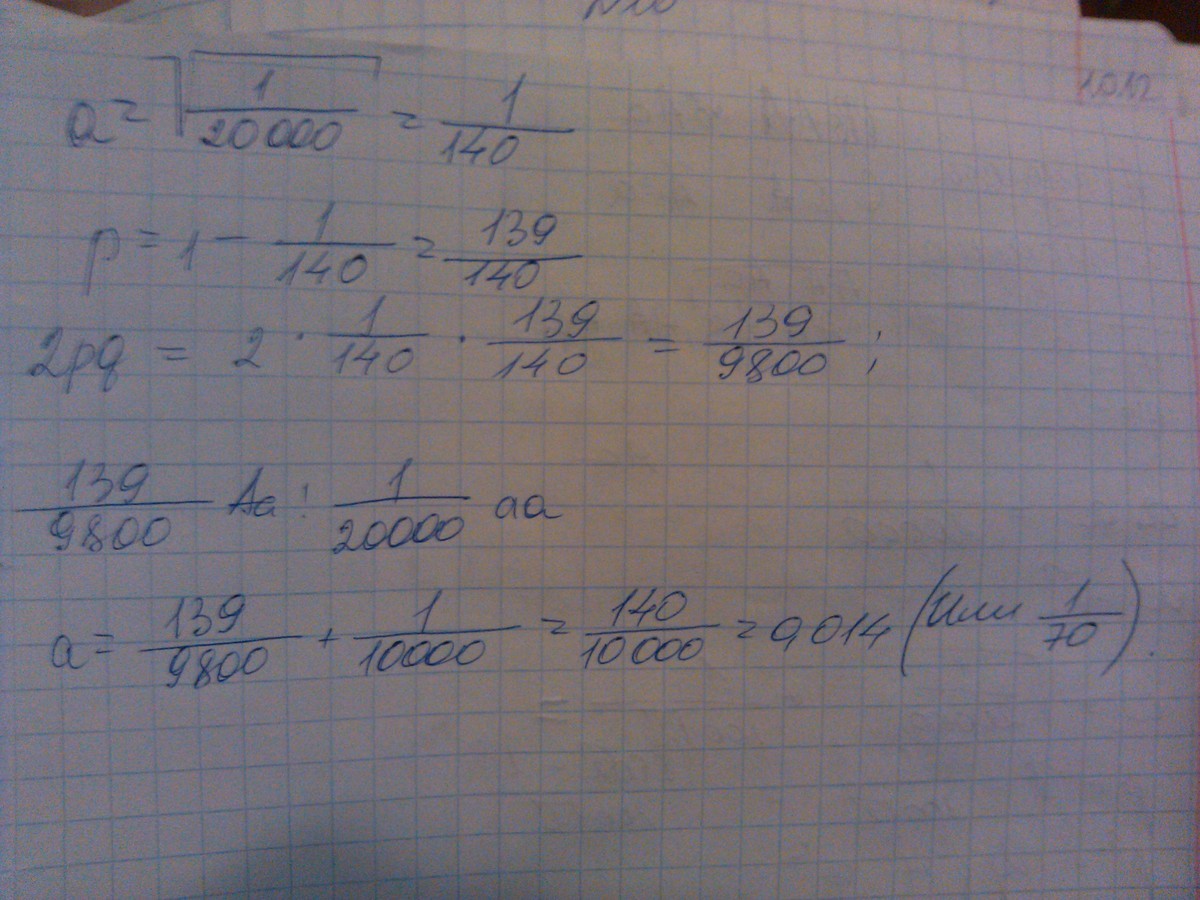 a = √1/20000 = 1/140
p = 1 - 1/140 = 139/140
2pq = 2 · 1/140 · 139/140 = 139/9800 ;
139/9800 Aa : 1/20000 aa
a = 139/9800 + 1/10000 = 140/10000 = 0,014 (или 1/70).